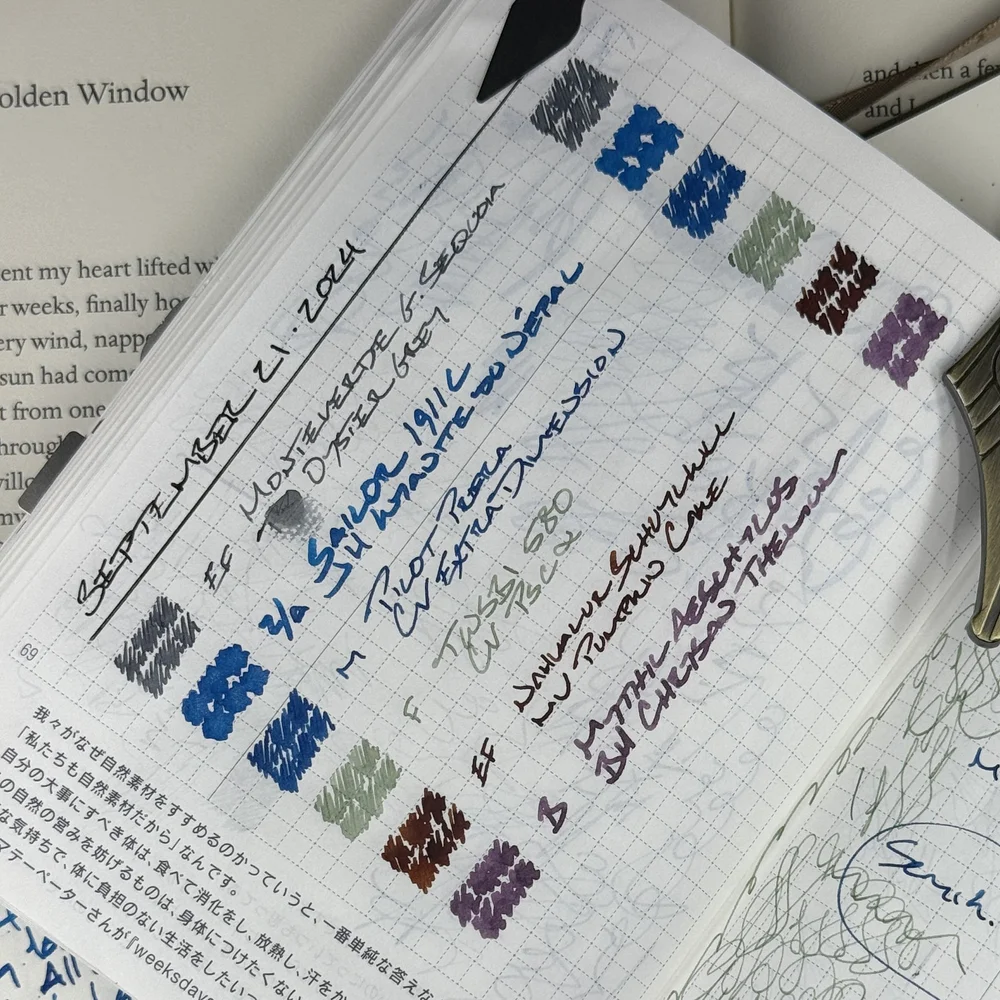 olden Window
ent my heart lifted w
r weeks, finally ho
ery wind, napp
sun had com
t from one
through
willo
my
and then a few
and I
SEPTEMBER 21. 2024
EF MONTEVERDE G. SEQUOIA
OYSTER GREY
SAILOR 1911L
JH KYANITE DU NÉPAL
M PILOT PRERA
CV EXTRA DIMENSION
F TWSBI 580
CV PSC2
EF NAHVALUR SCHUYLKILL
BV
B MYTHIC AESCHYLUS
BH
69
我々がなぜ自然素材をすすめるのかっていうと、一番単純な答え
「私たちも自然素材だから」なんです。
自分の大事にすべき体は、食べて消化をし、放熱し、汗をか
の自然の営みを妨げるものは、身体につけたくない
な気持ちで、体に負担のない生活をしたい
マテーベーターさんが『weeksday